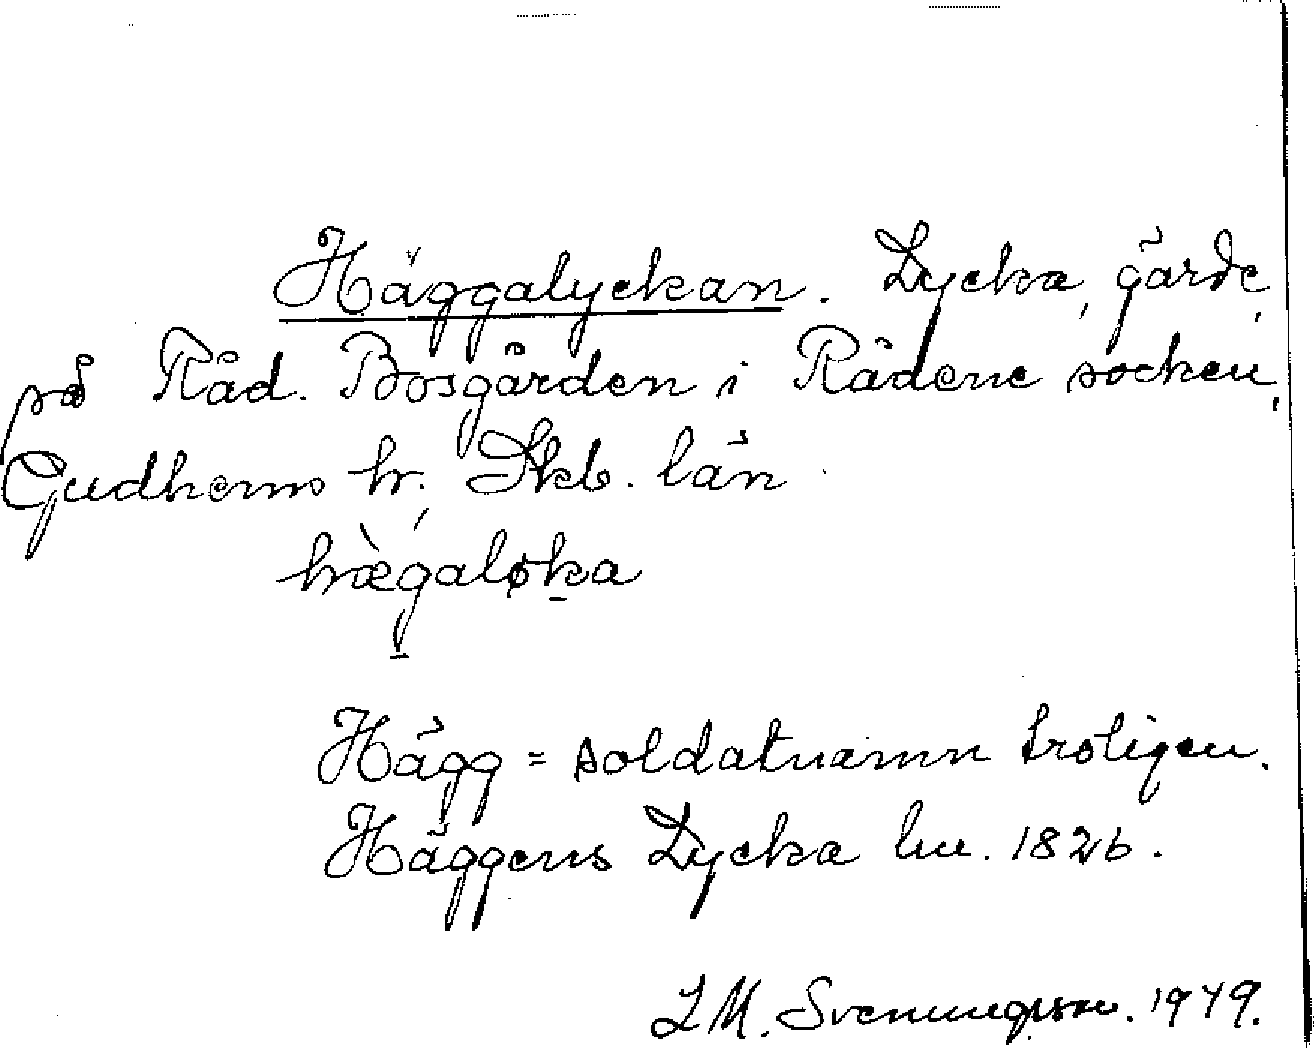 Häggalyckan. Lycka, gärde,
på Råd. Bosgården i Rådene socken,
Gudhems hr, Skb. län
hæ̀galøka
Hägg = soldatnamn troligen.
Häggens Lycka lm. 1826.
L M. Svenungsson. 1949.